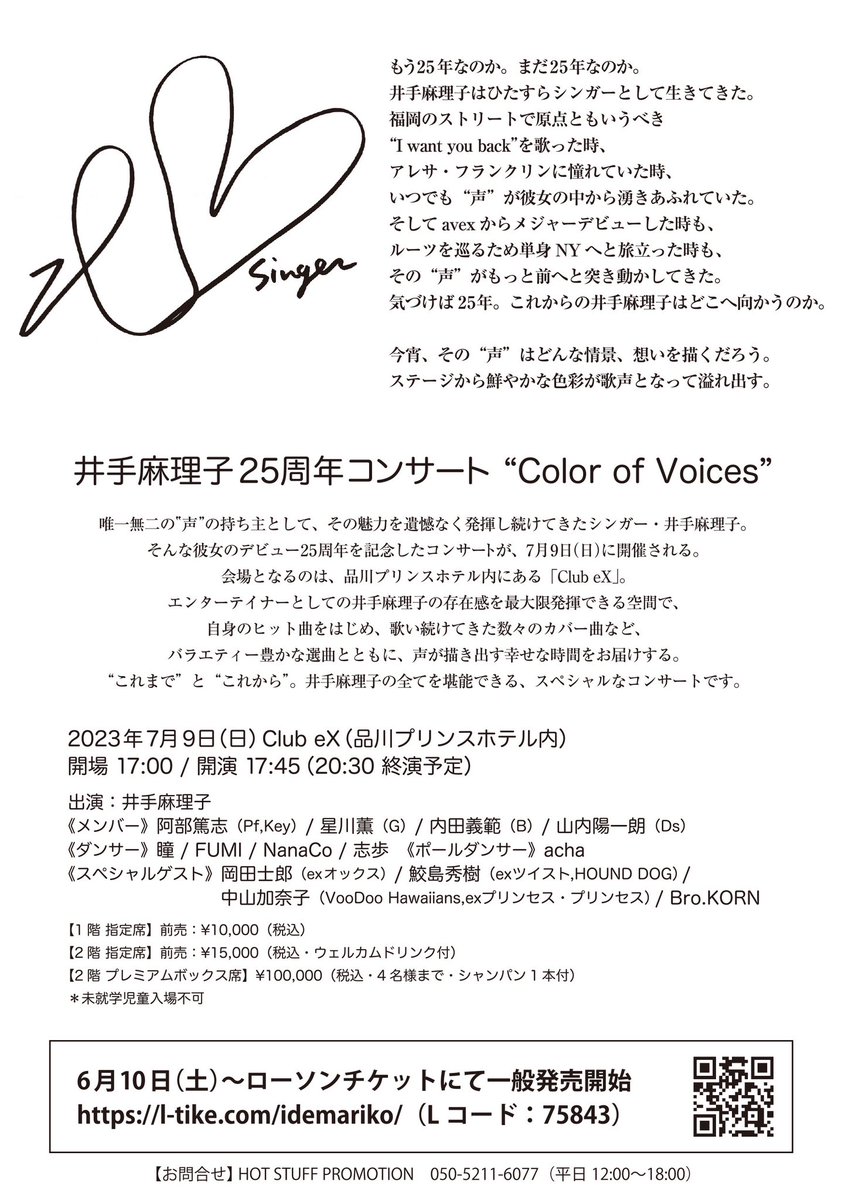 もう25年なのか。まだ25年なのか。
井手麻理子はひたすらシンガーとして生きてきた。
福岡のストリートで原点ともいうべき
“I want you back”を歌った時、
アレサ・フランクリンに憧れていた時、
いつでも“声”が彼女の中から湧きあふれていた。
そしてavexからメジャーデビューした時も、
ルーツを巡るため単身NYへと旅立った時も、
その“声”がもっと前へと突き動かしてきた。
気づけば25年。これからの井手麻理子はどこへ向かうのか。
今宵、その“声”はどんな情景、想いを描くだろう。
ステージから鮮やかな色彩が歌声となって溢れ出す。
Singer
井手麻理子25周年コンサート “Color of Voices”
唯一無二の"声"の持ち主として、その魅力を遺憾なく発揮し続けてきたシンガー・井手麻理子。
そんな彼女のデビュー25周年を記念したコンサートが、7月9日(日)に開催される。
会場となるのは、品川プリンスホテル内にある「Club eX」。
エンターテイナーとしての井手麻理子の存在感を最大限発揮できる空間で、
自身のヒット曲をはじめ、歌い続けてきた数々のカバー曲など、
バラエティー豊かな選曲とともに、声が描き出す幸せな時間をお届けする。
“これまで”と“これから”。井手麻理子の全てを堪能できる、スペシャルなコンサートです。
2023年7月9日(日) Club eX(品川プリンスホテル内)
開場 17:00 / 開演 17:45(20:30 終演予定)
出演：井手麻理子
《メンバー》阿部篤志(Pf,Key) / 星川薫(G) / 内田義範(B) / 山内陽一朗(Ds)
《ダンサー》瞳 / FUMI / NanaCo / 志歩 《ポールダンサー》acha
《スペシャルゲスト》岡田士郎(exオックス) / 鮫島秀樹(exツイスト,HOUND DOG) /
中山加奈子(VooDoo Hawaiians,exプリンセス・プリンセス) / Bro.KORN
【1階 指定席】前売：¥10,000(税込)
【2階 指定席】前売：¥15,000(税込・ウェルカムドリンク付)
【2階 プレミアムボックス席】¥100,000(税込・4名様まで・シャンパン1本付)
＊未就学児童入場不可
6月10日(土)～ローソンチケットにて一般発売開始
https://l-tike.com/idemariko/(Lコード：75843)
【お問合せ】HOT STUFF PROMOTION 050-5211-6077(平日 12:00～18:00)